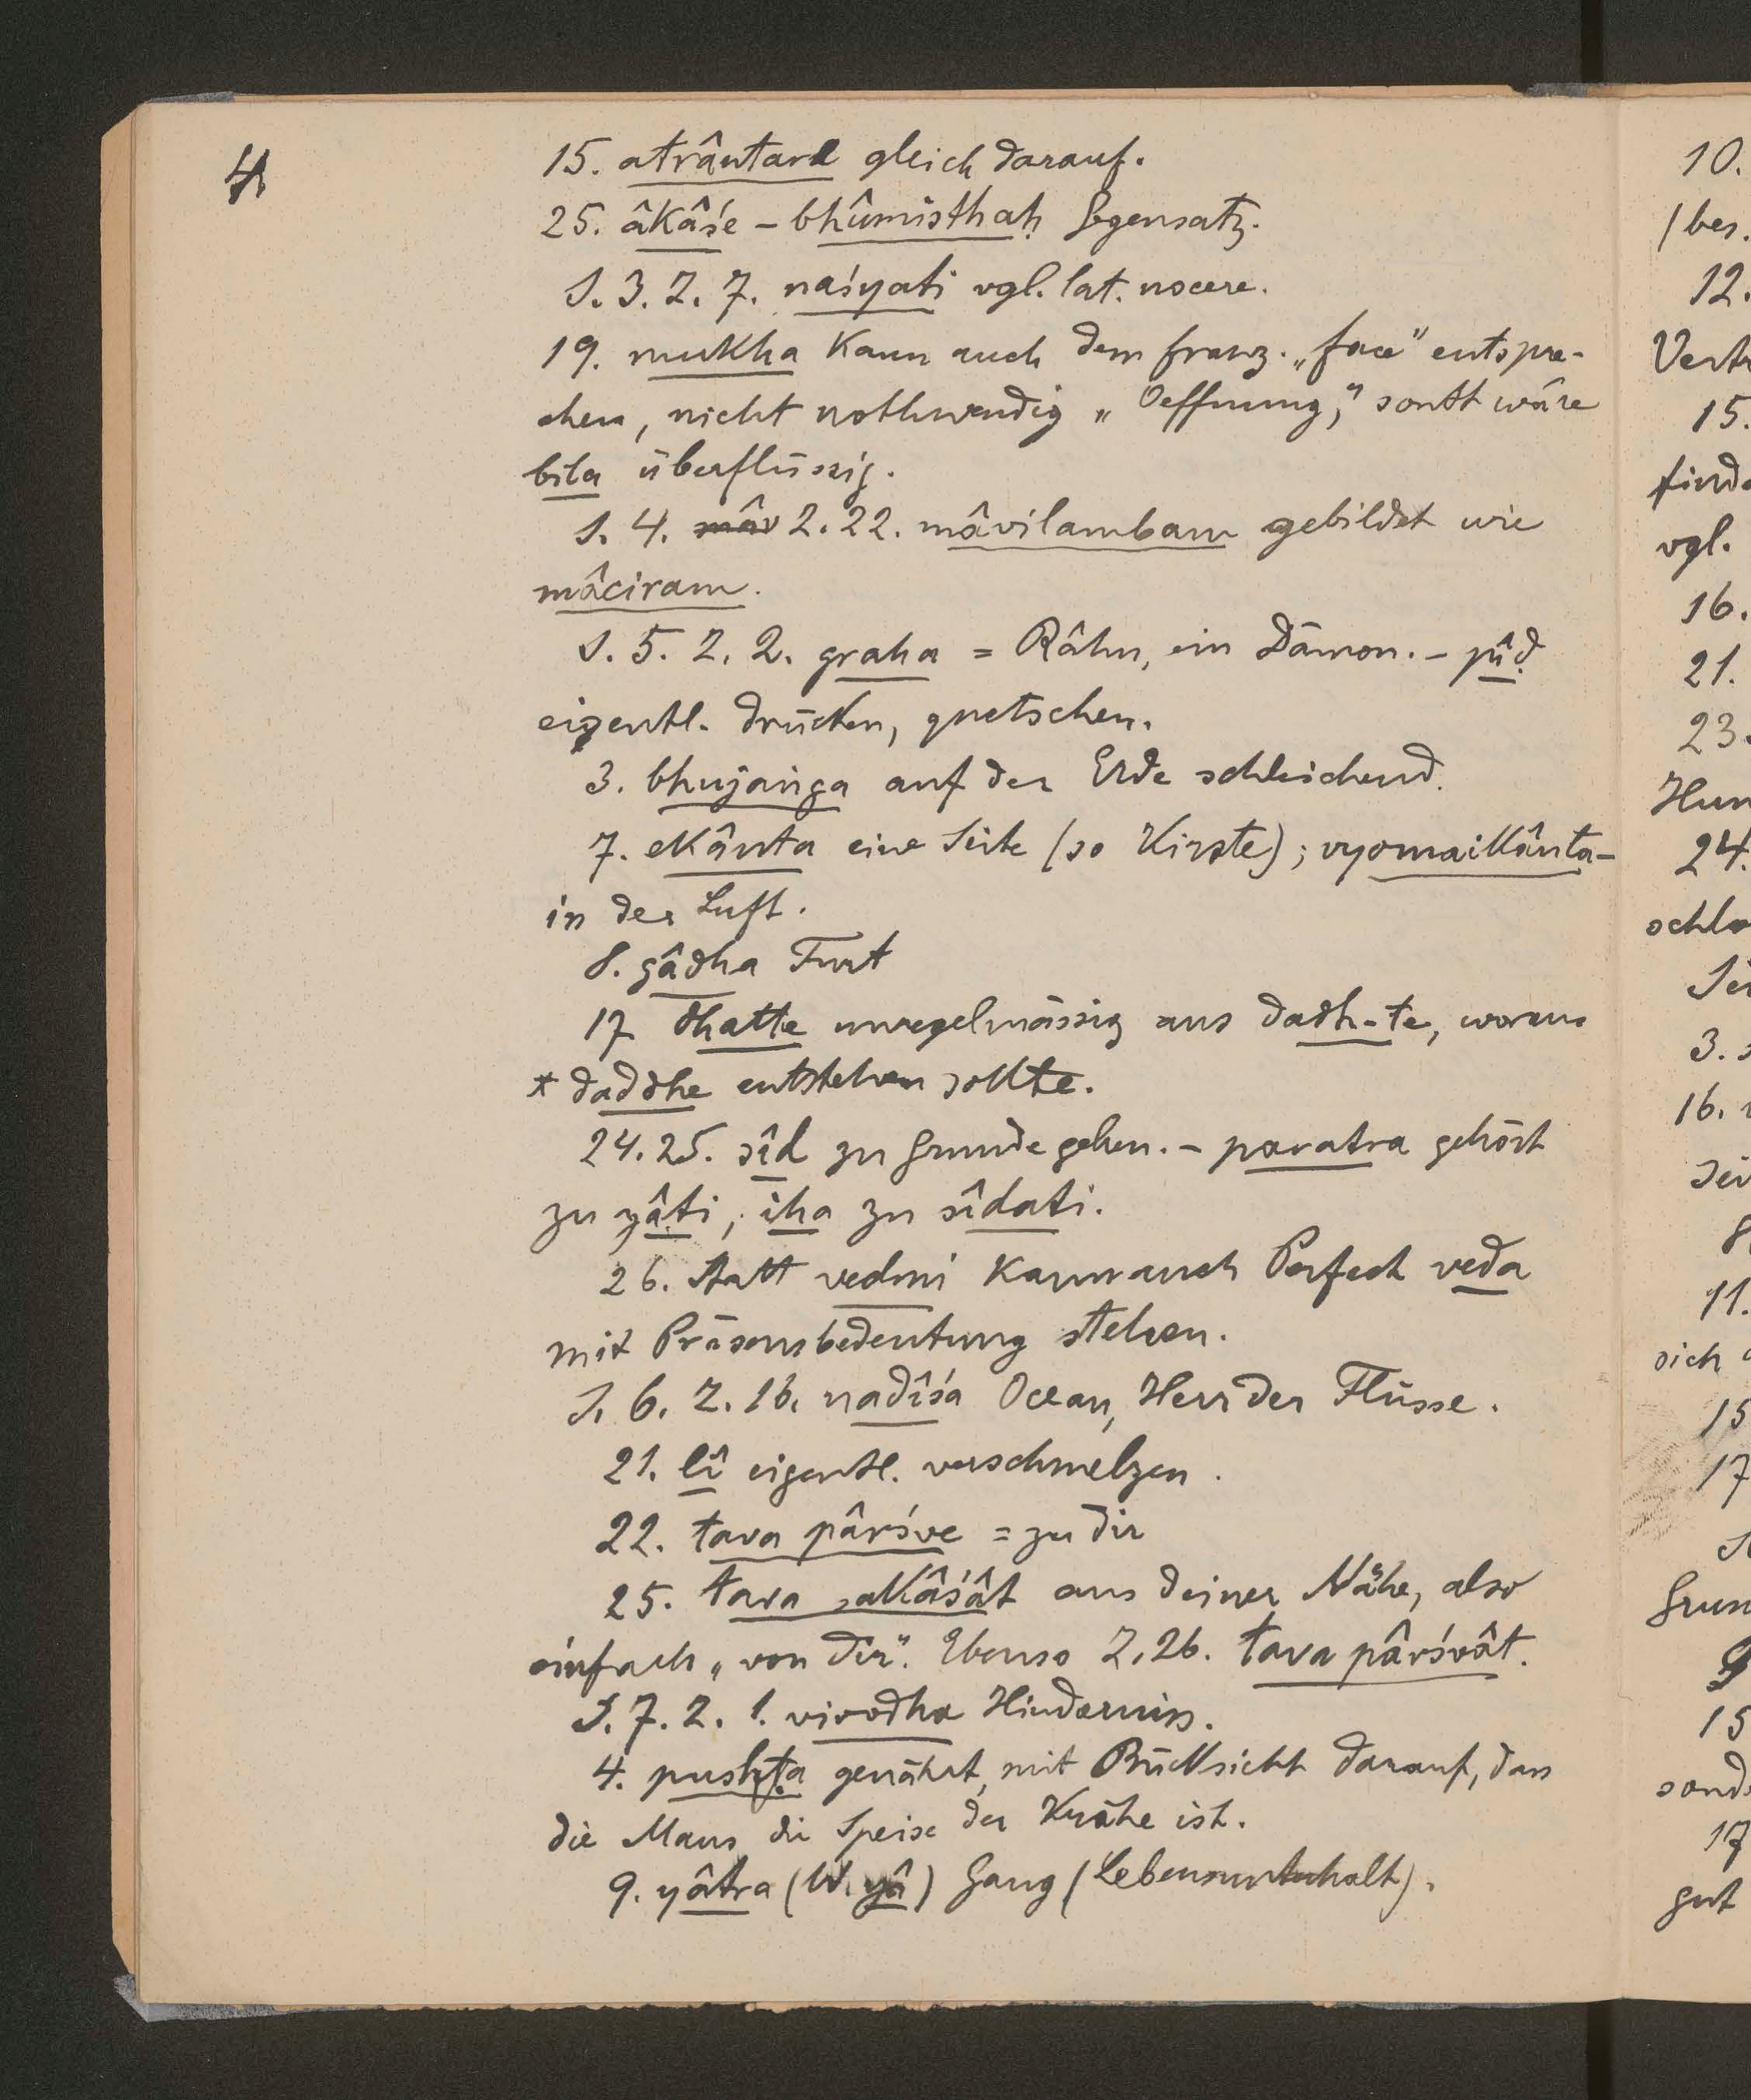 4
15. atrântare gleich darauf.
25. âkâśe – bhûmisthaḥ Gegensatz.
S. 3. Z. 7. naśyati vgl. lat. nocere.
19. mukha kann auch dem franz. „face" entspre-
chen, nicht nothwendig „Oeffnung," sonst wäre
bila überflüssig.
S. 4. mâv Z. 22. mâvilambam gebildet wie
mâciram.
S. 5. Z. 2. graha = Râhu, ein Dämon. – pîḍ
eigentl. drücken, quetschen.
3. bhujaṅga auf der Erde schleichend.
7. ekânta eine Seite (so Kirste); vyomaikânta-
in der Luft.
8. gâdha Furt
17 dhatte unregelmässig aus dadh-te, woraus
* daddhe entstehen sollte.
24.25. sîd zu Grunde gehen. – paratra gehört
zu yâti, iha zu sîdati.
26. statt vedmi kann auch Perfect veda
mit Präsensbedeutung stehen.
S. 6. Z. 16. nadîśa Ocean, Herr der Flüsse.
21. lî eigentl. verschmelzen.
22. tava pârśve = zu dir
25. tava sakâśât aus deiner Nähe, also
einfach „von dir". Ebenso Z. 26. tava pârśvât.
S. 7. Z. 1. virodha Hinderniss.
4. pushṭa genährt, mit Rücksicht darauf, dass
die Maus die Speise der Krähe ist.
9. yâtra (W. yâ) Gang (Lebensunterhalt).
10.
(bes.
12.
15.
vgl.
16.
21.
23.
24.
3.
16.
11.
sich
15
17
15
17
gut